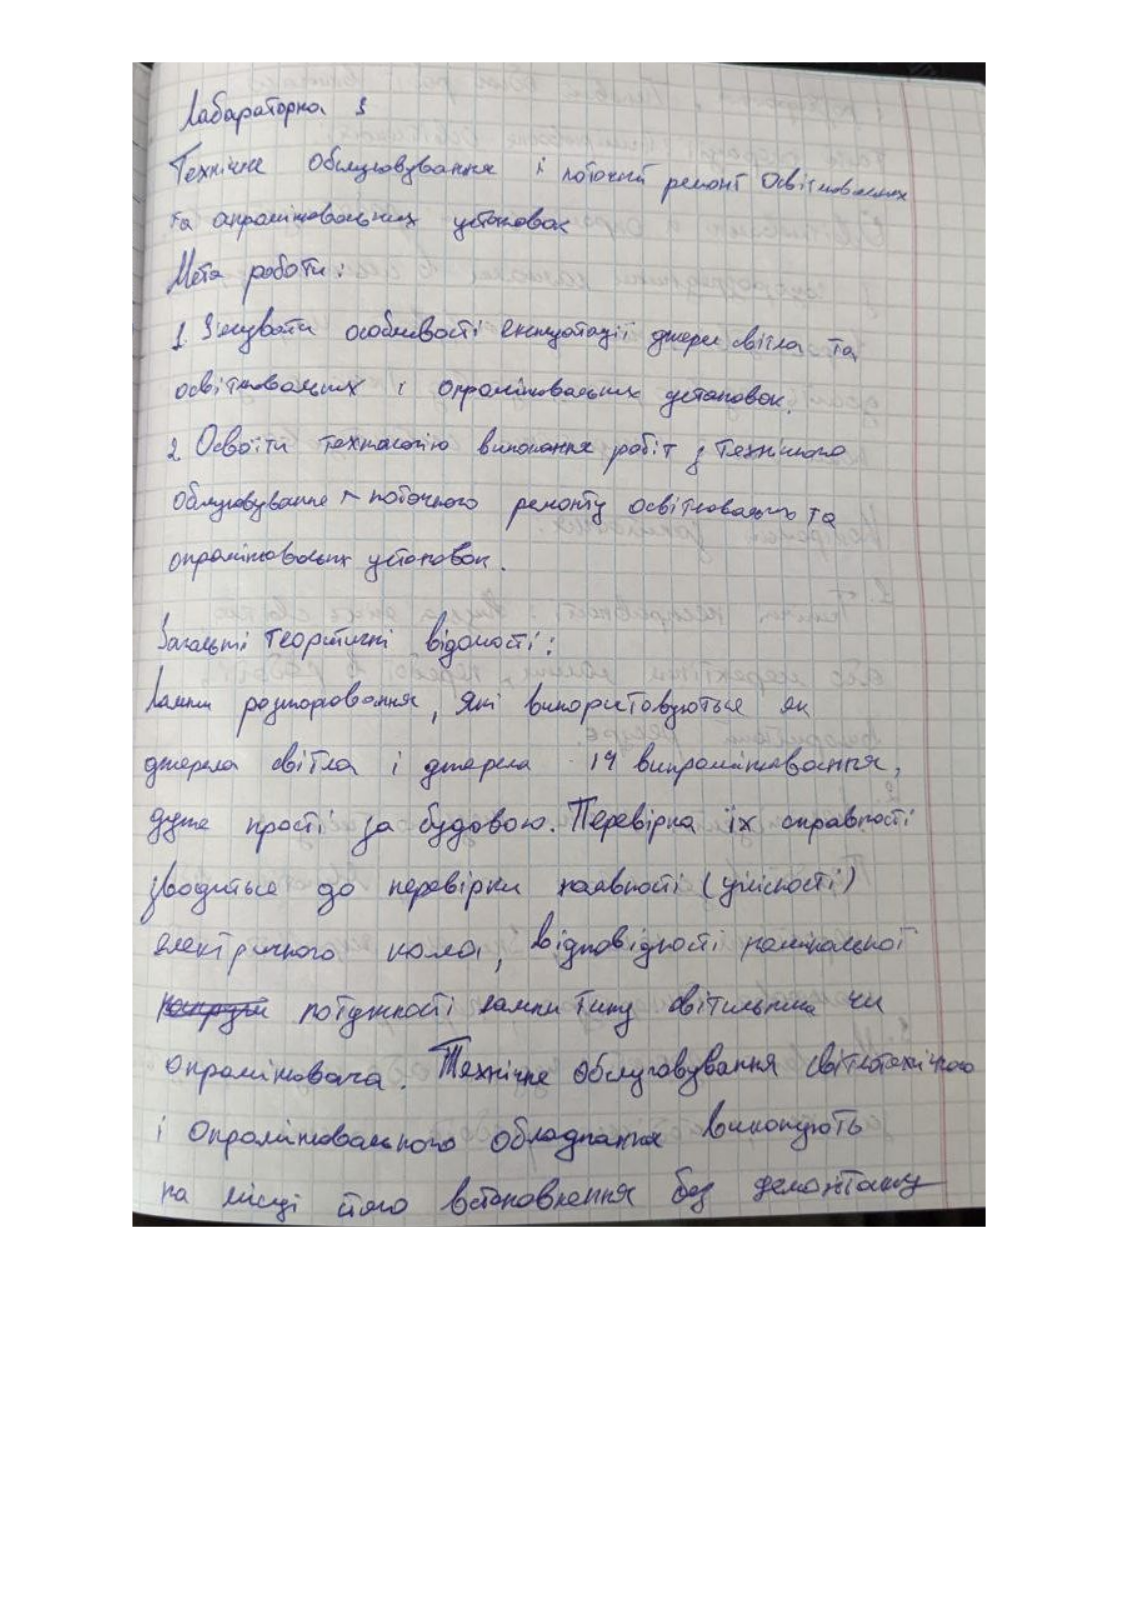 Лабараторна 3
Технічне обслуговування і поточний ремонт освітлювальних
та опромінювальних установок
Мета роботи:
1. З'ясувати особливості експлуатації джерел світла та
освітлювальних і опромінювальних установок.
2. Освоїти технологію виконання робіт з технічного
обслуговування поточного ремонту освітлювальних та
опромінювальних установок.
Загальні теоритичні відомості:
Лампи розжарювання, які використовуються як
джерела світла і джерела ІЧ випромінювання,
дуже прості за будовою. Перевірка їх справності
зводиться до перевірки наявності (цілісності)
електричного кола, відповідності номінальної
напруги потужності лампи типу світильника чи
опромінювача. Технічне обслуговування світлотехнічного
і опромінювального обладнання виконують
на місці його встановлення без демонтажу